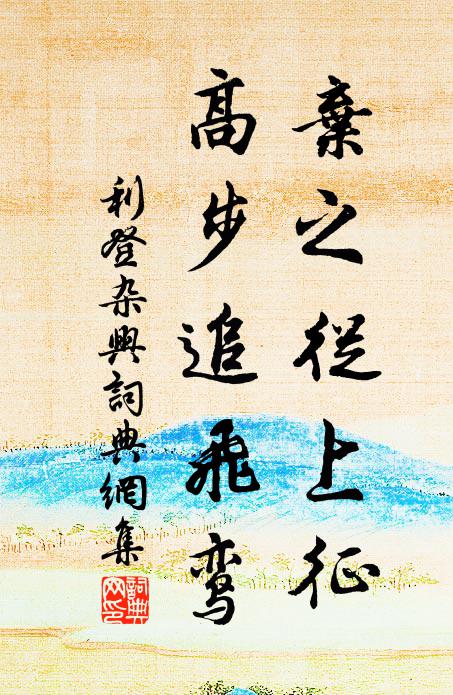 棄之從上征
高步追飛鸾
利登杂興詞典網集
詞典